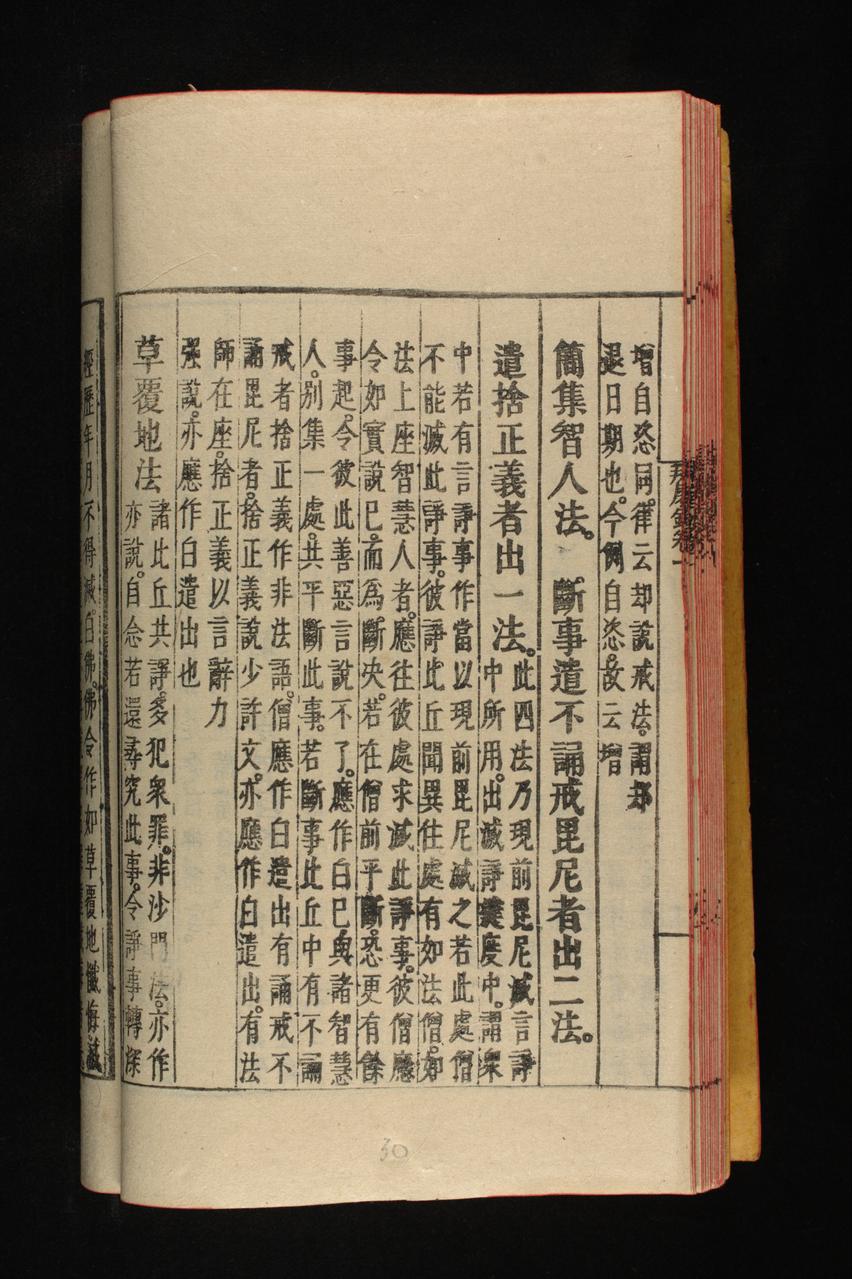 增自恣同。律云却說戒法。謂却
退日期也。今例自恣。故云增
簡集智人法。 斷事遣不誦戒毘尼者出二法。
遣捨正義者出一法。
此四法乃現前毘尼滅言諍
中所用。出滅諍犍度中。謂眾
中若有言諍事作當以現前毘尼滅之若此處僧
不能滅此諍事。彼諍比丘聞異住處有如法僧。如
法上座智慧人者。應往彼處求滅此諍事。彼僧應
令如實說已。而為斷決。若在僧前平斷。恐更有餘
事起。令彼此善惡言說不了。應作白已與諸智慧
人。別集一處。共平斷此事。若斷事比丘中有不誦
戒者捨正義作非法語。僧應作白遣出有誦戒不
誦毘尼者。捨正義說少許文。亦應作白遣出。有法
師在座。捨正義以言辭力
強說。亦應作白遣出也
草覆地法
諸比丘共諍。多犯眾罪。非沙門法。亦作
亦說。自念若還尋究此事。令諍事轉深
經歷年月不得滅。白佛。佛令作如草覆地懺悔滅
30